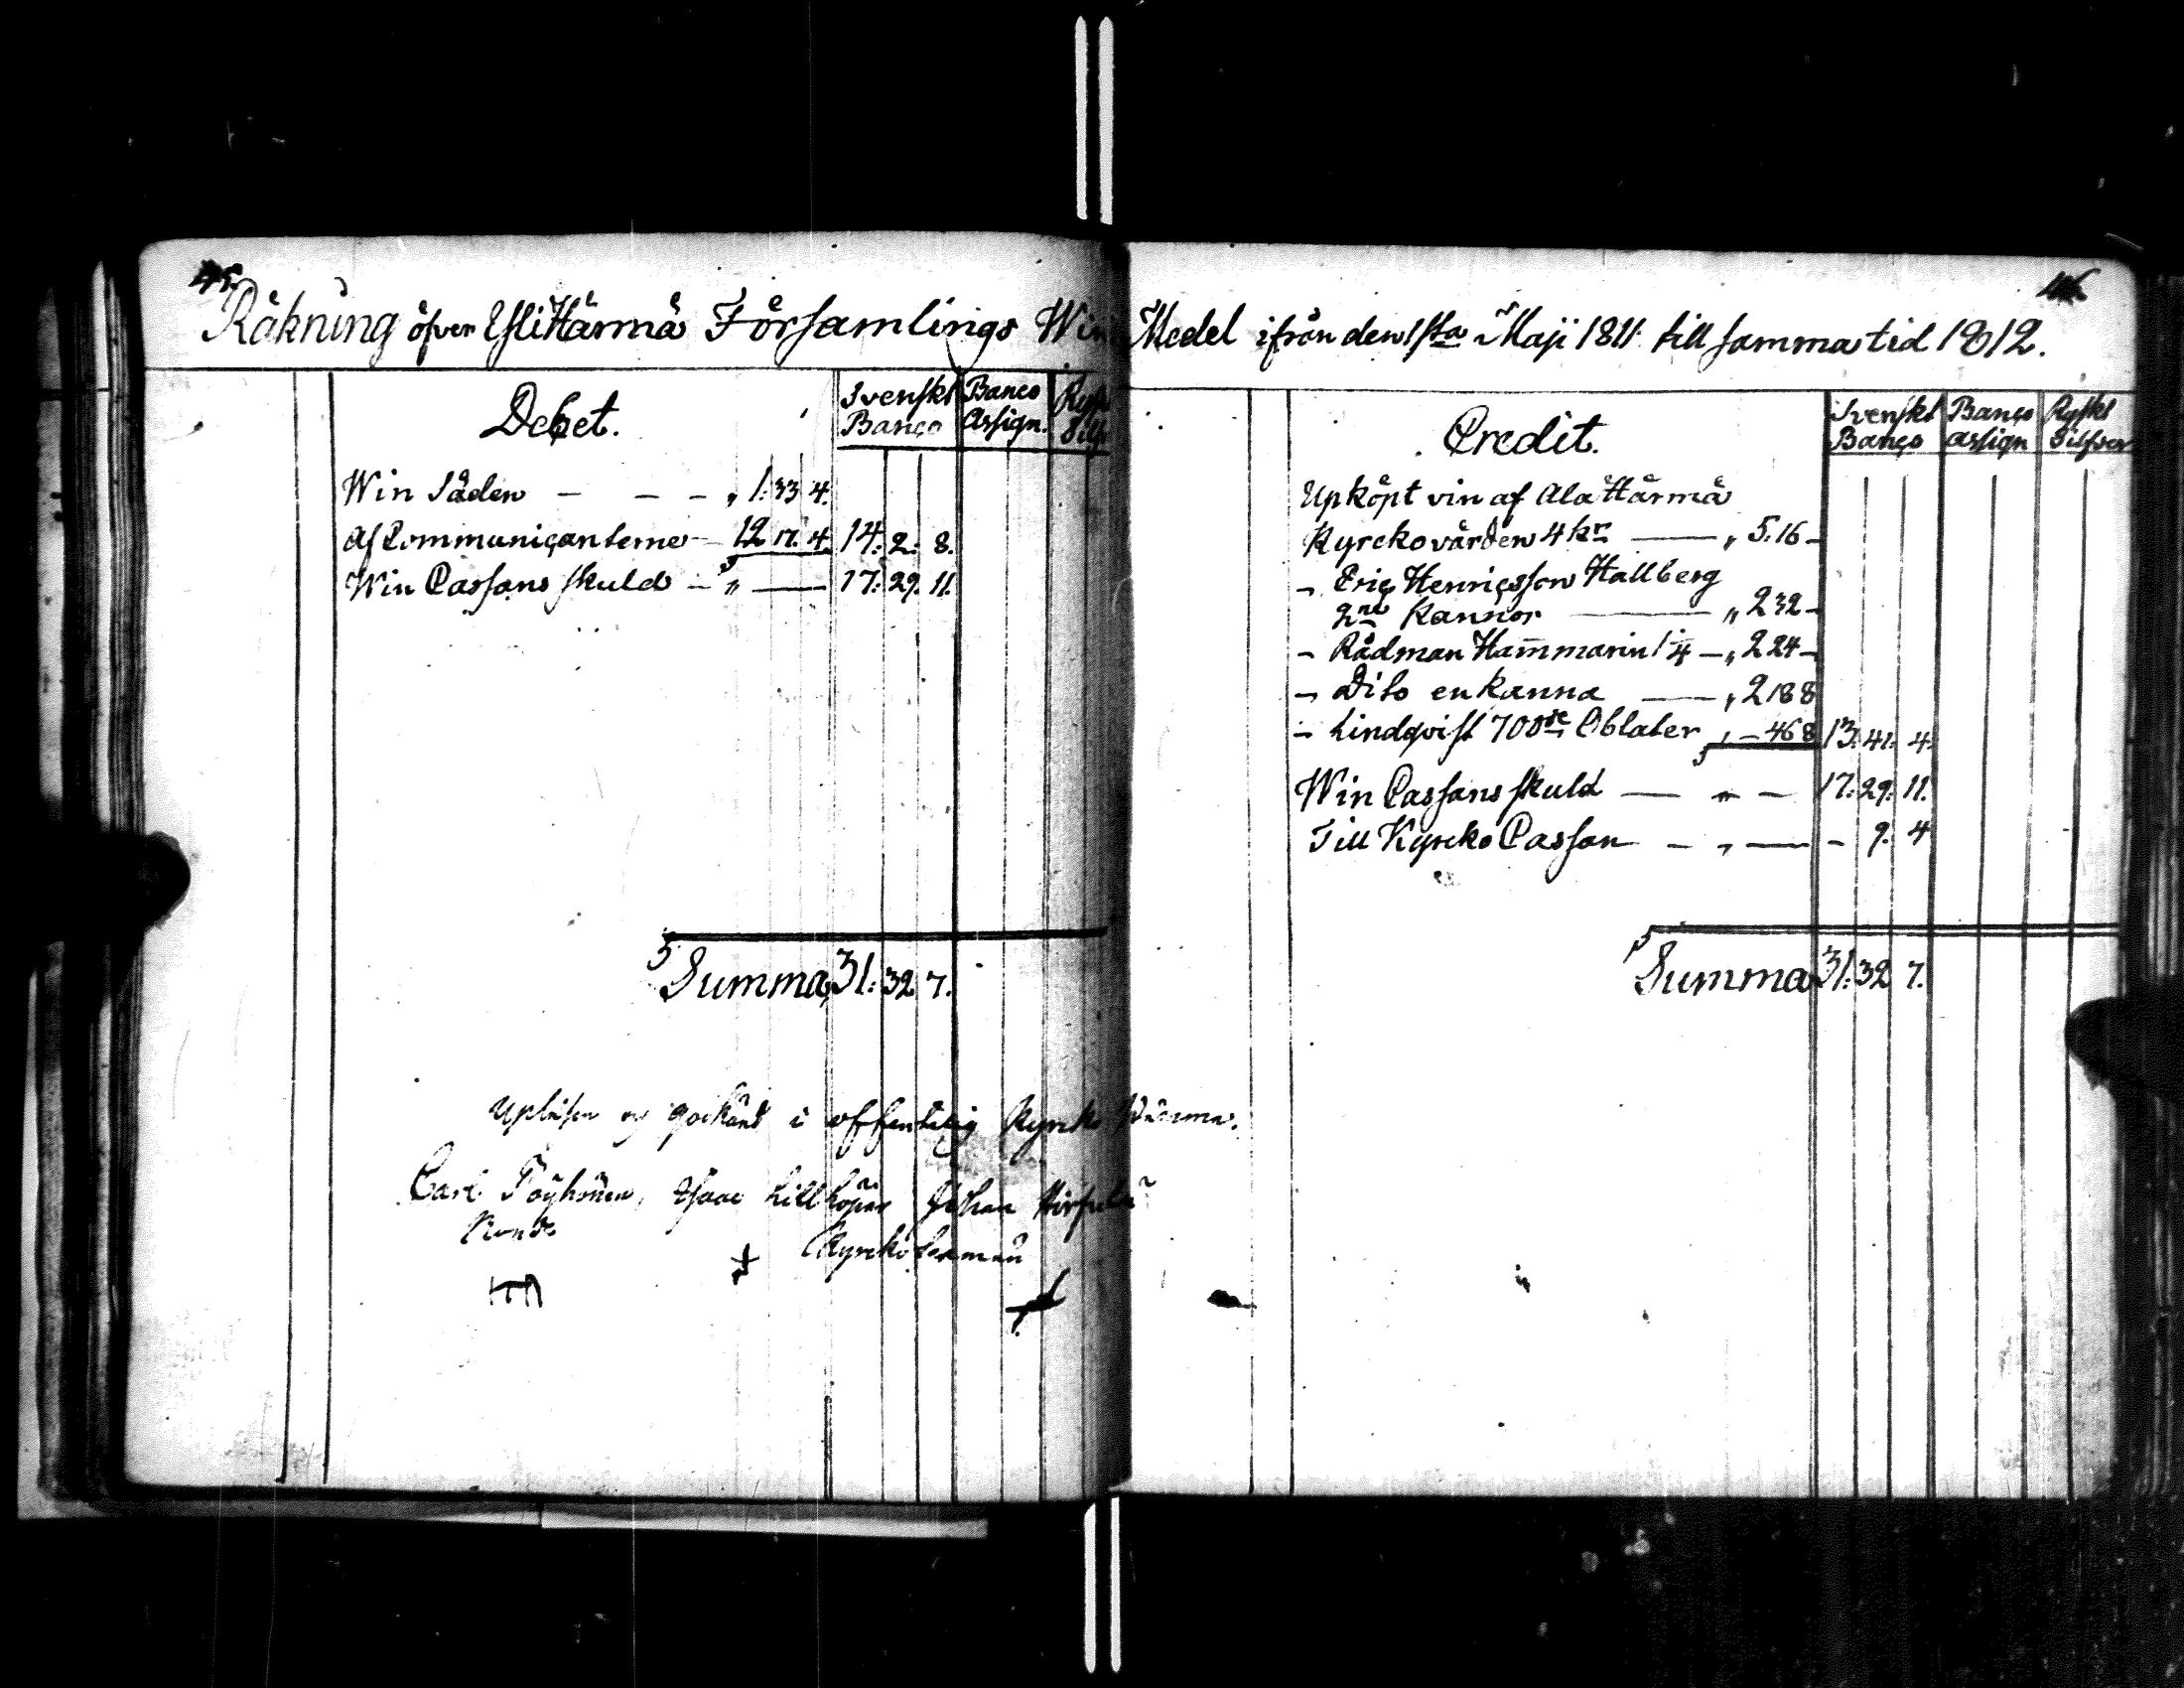 45.
Räkning öfver Ylihärmä Församlings Win
Debet.
Svenskt Banco
Banco Assign.
Win Säden — — — „ 1. 33 4.
Af Communicanterne — 12. 17. 4. 14: 2: 8.
Win Cassans skuld — „ — 17: 29. 11.
Summa 31: 32 7.
Upläsen och godkänd i offentelig Kyrko
Carl Isaac Johan
Kyrko
46
Medel ifrån den 1sta Maji 1811 till samma tid 1812.
Credit.
Svenskt Banco
Banco Assign
Ryskt Silfver
Upköpt vin af Ala Härmä
Kyrckovärden 4 kr — „ 5. 16 —
— Eric Henricsson Hallberg
2ne Kannor — „ 2 32 —
— Rådman Hammarin 1¼ — „ 2 24 —
— Dito en Kanna — „ 2 18 8
— Lindqvist 700de Oblater „ — 46 8 13: 41. 4.
Win Cassans skuld — „ — 17: 29: 11.
Till Kyrcko Cassan — „ — - 9. 4
Summa 31: 32 7.